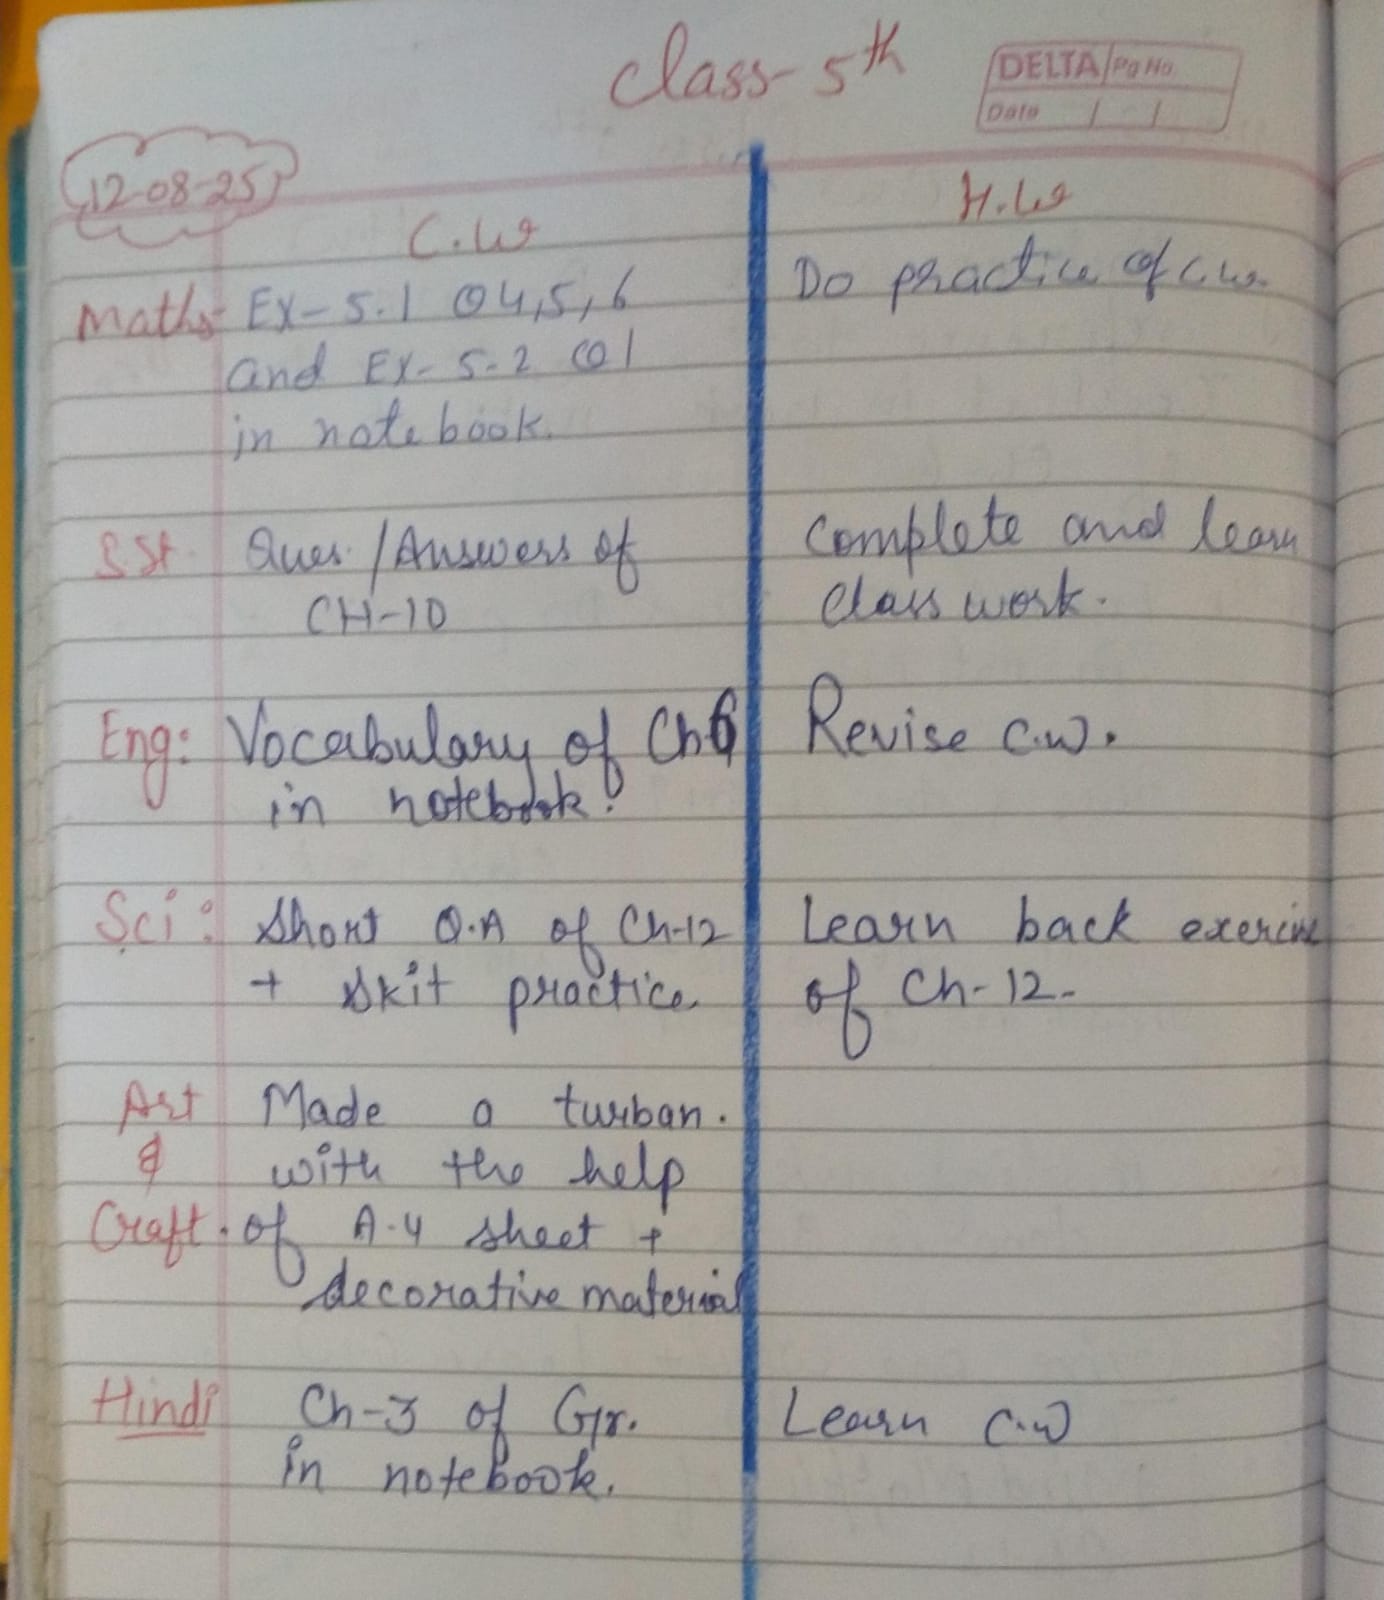 Class-5th
DELTA Pg No.
Date / /
12-08-25
C.W
H.W
Maths- Ex-5.1 Q4,5,6
and Ex-5.2 Q1
in notebook.
Do practice of C.W.
S.St. Ques./Answers of
CH-10
Complete and learn
Class work.
Eng: Vocabulary of Ch6
in notebook.
Revise C.W.
Sci: Short Q.A of Ch-12
+ skit practice
Learn back exercise
of Ch-12-
Art
&
Craft.
Made a turban.
with the help
of A-4 sheet +
decorative material
Hindi Ch-3 of Gr.
in notebook.
Learn C.W